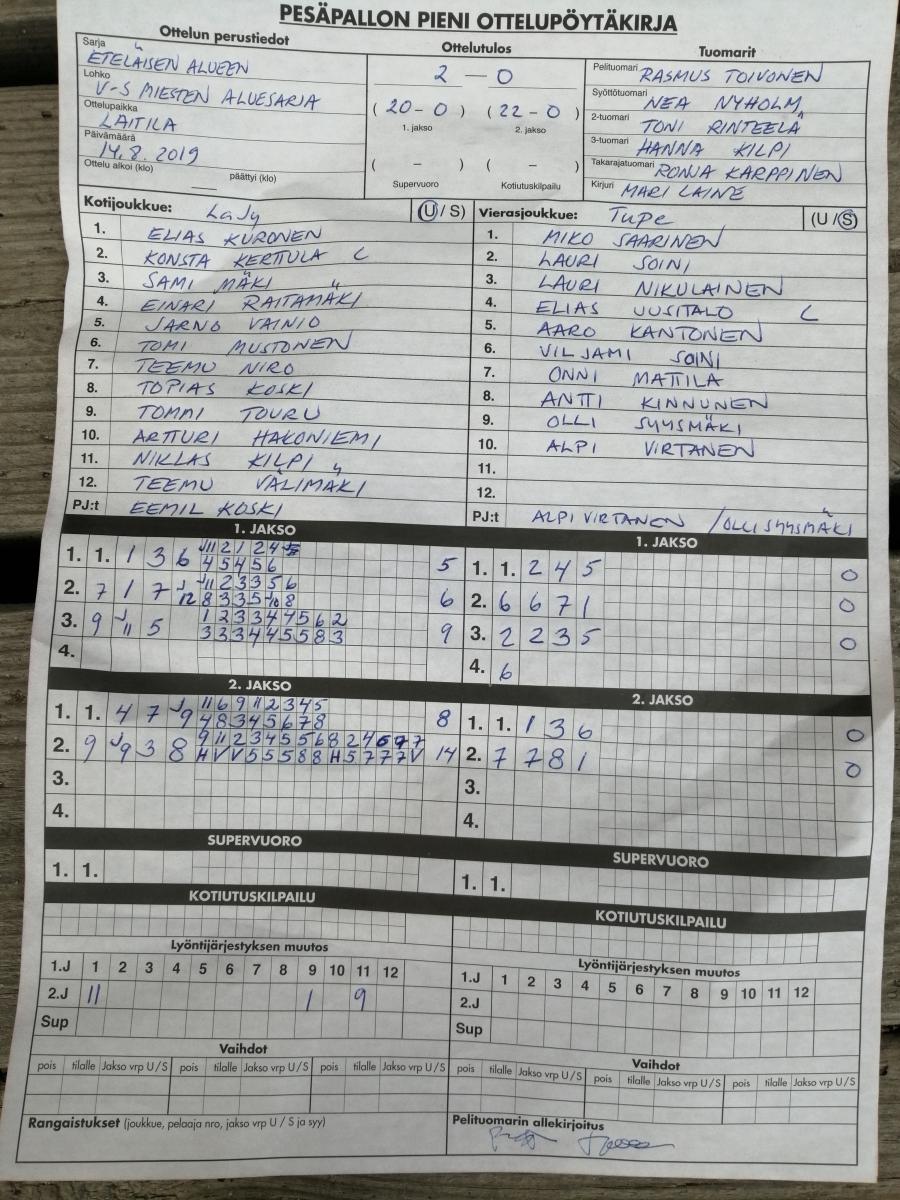 PESÄPALLON PIENI OTTELUPÖYTÄKIRJA
Ottelun perustiedot
Sarja ETELÄISEN ALUEEN
Lohko V-S MIESTEN ALUESARJA
Ottelupaikka LAITILA
Päivämäärä 14.8.2019
Ottelu alkoi (klo) — päättyi (klo)
Ottelutulos
2 — 0
( 20 - 0 ) ( 22 - 0 )
1. jakso 2. jakso
( - ) ( - )
Supervuoro Kotiutuskilpailu
Tuomarit
Pelituomari RASMUS TOIVONEN
Syöttötuomari NEA NYHOLM
2-tuomari TONI RINTEELÄ
3-tuomari HANNA KILPI
Takarajatuomari RONJA KARPPINEN
Kirjuri MARI LAINE
Kotijoukkue: LaJy (U / S)
1. ELIAS KURONEN
2. KONSTA KERTTULA C
3. SAMI MÄKI
4. EINARI RAITAMÄKI
5. JARNO VAINIO
6. TOMI MUSTONEN
7. TEEMU NIRO
8. TOPIAS KOSKI
9. TOMMI TOURU
10. ARTTURI HAKONIEMI
11. NIKLAS KILPI
12. TEEMU VÄLIMÄKI
PJ:t EEMIL KOSKI
Vierasjoukkue: TuPe (U / S)
1. MIKO SAARINEN
2. LAURI SOINI
3. LAURI NIKULAINEN
4. ELIAS UUSITALO C
5. AARO KANTONEN
6. VILJAMI SOINI
7. ONNI MATTILA
8. ANTTI KINNUNEN
9. OLLI SYYSMÄKI
10. ALPI VIRTANEN
11.
12.
PJ:t ALPI VIRTANEN / OLLI SYYSMÄKI
1. JAKSO
1. 1. 1 3 6 J11 2 1 2 4 5
4 5 4 5 6
2. 7 1 7 J12 J11 2 3 3 5 6
8 3 3 5 J10 8 6
3. 9 J11 5 1 2 3 3 4 4 5 6 2
3 2 3 4 4 5 5 8 3 9
4.
1. JAKSO
1. 1. 2 4 5 0
2. 6 6 7 1 0
3. 2 2 3 5 0
4. 6
2. JAKSO
1. 1. 4 7 J9 11 6 9 11 2 3 4 5
4 8 3 4 5 6 7 8 8
2. 9 J9 3 8 9 11 2 3 4 5 5 6 8 2 4 6 7
H V V 5 5 5 8 8 H 5 7 7 7 V 14
3.
4.
2. JAKSO
1. 1. 1 3 6 0
2. 7 7 8 1 0
3.
4.
SUPERVUORO
1. 1.
SUPERVUORO
1. 1.
KOTIUTUSKILPAILU
KOTIUTUSKILPAILU
Lyöntijärjestyksen muutos
1.J 1 2 3 4 5 6 7 8 9 10 11 12
2.J 11 1 9
Sup
Lyöntijärjestyksen muutos
1.J 1 2 3 4 5 6 7 8 9 10 11 12
2.J
Sup
Vaihdot
pois tilalle Jakso vrp U / S pois tilalle Jakso vrp U / S pois tilalle Jakso vrp U / S
Vaihdot
pois tilalle Jakso vrp U / S pois tilalle Jakso vrp U / S pois tilalle Jakso vrp U / S
Rangaistukset (joukkue, pelaaja nro, jakso vrp U / S ja syy)
Pelituomarin allekirjoitus